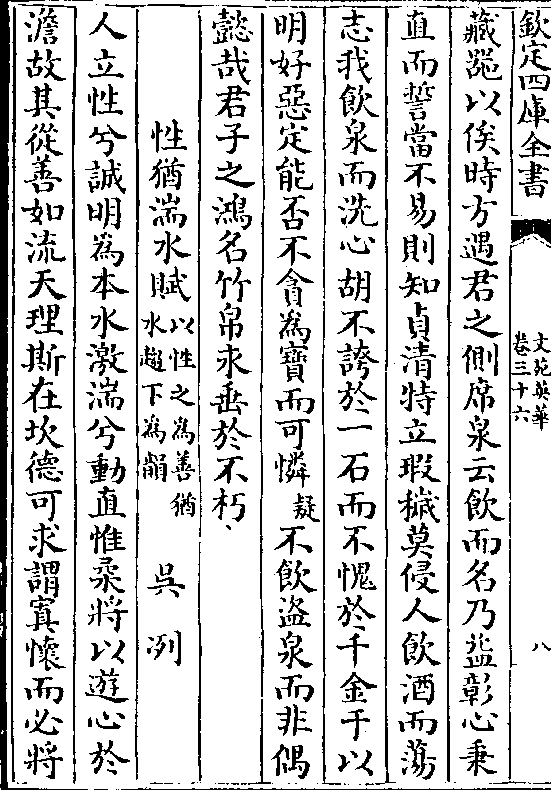 欽定四庫全書
文苑英華
卷三十六
八
藏器以俟時方遇君之側席泉云飲而名乃益彰心秉
直而誓當不易則知貞清特立瑕穢莫侵人飲酒而蕩
志我飲泉而洗心胡不誇於一石而不愧於千金于以
明好惡定能否不貪為寳而可憐疑不飲盜泉而非偶
懿哉君子之鴻名竹帛永垂於不朽
性猶湍水賦以性之為善猶水趨下為韻 吳冽
人立性兮誠明為本水激湍兮動直惟柔將以遊心於
澹故其從善如流天理斯在坎德可求謂寘懷而必將